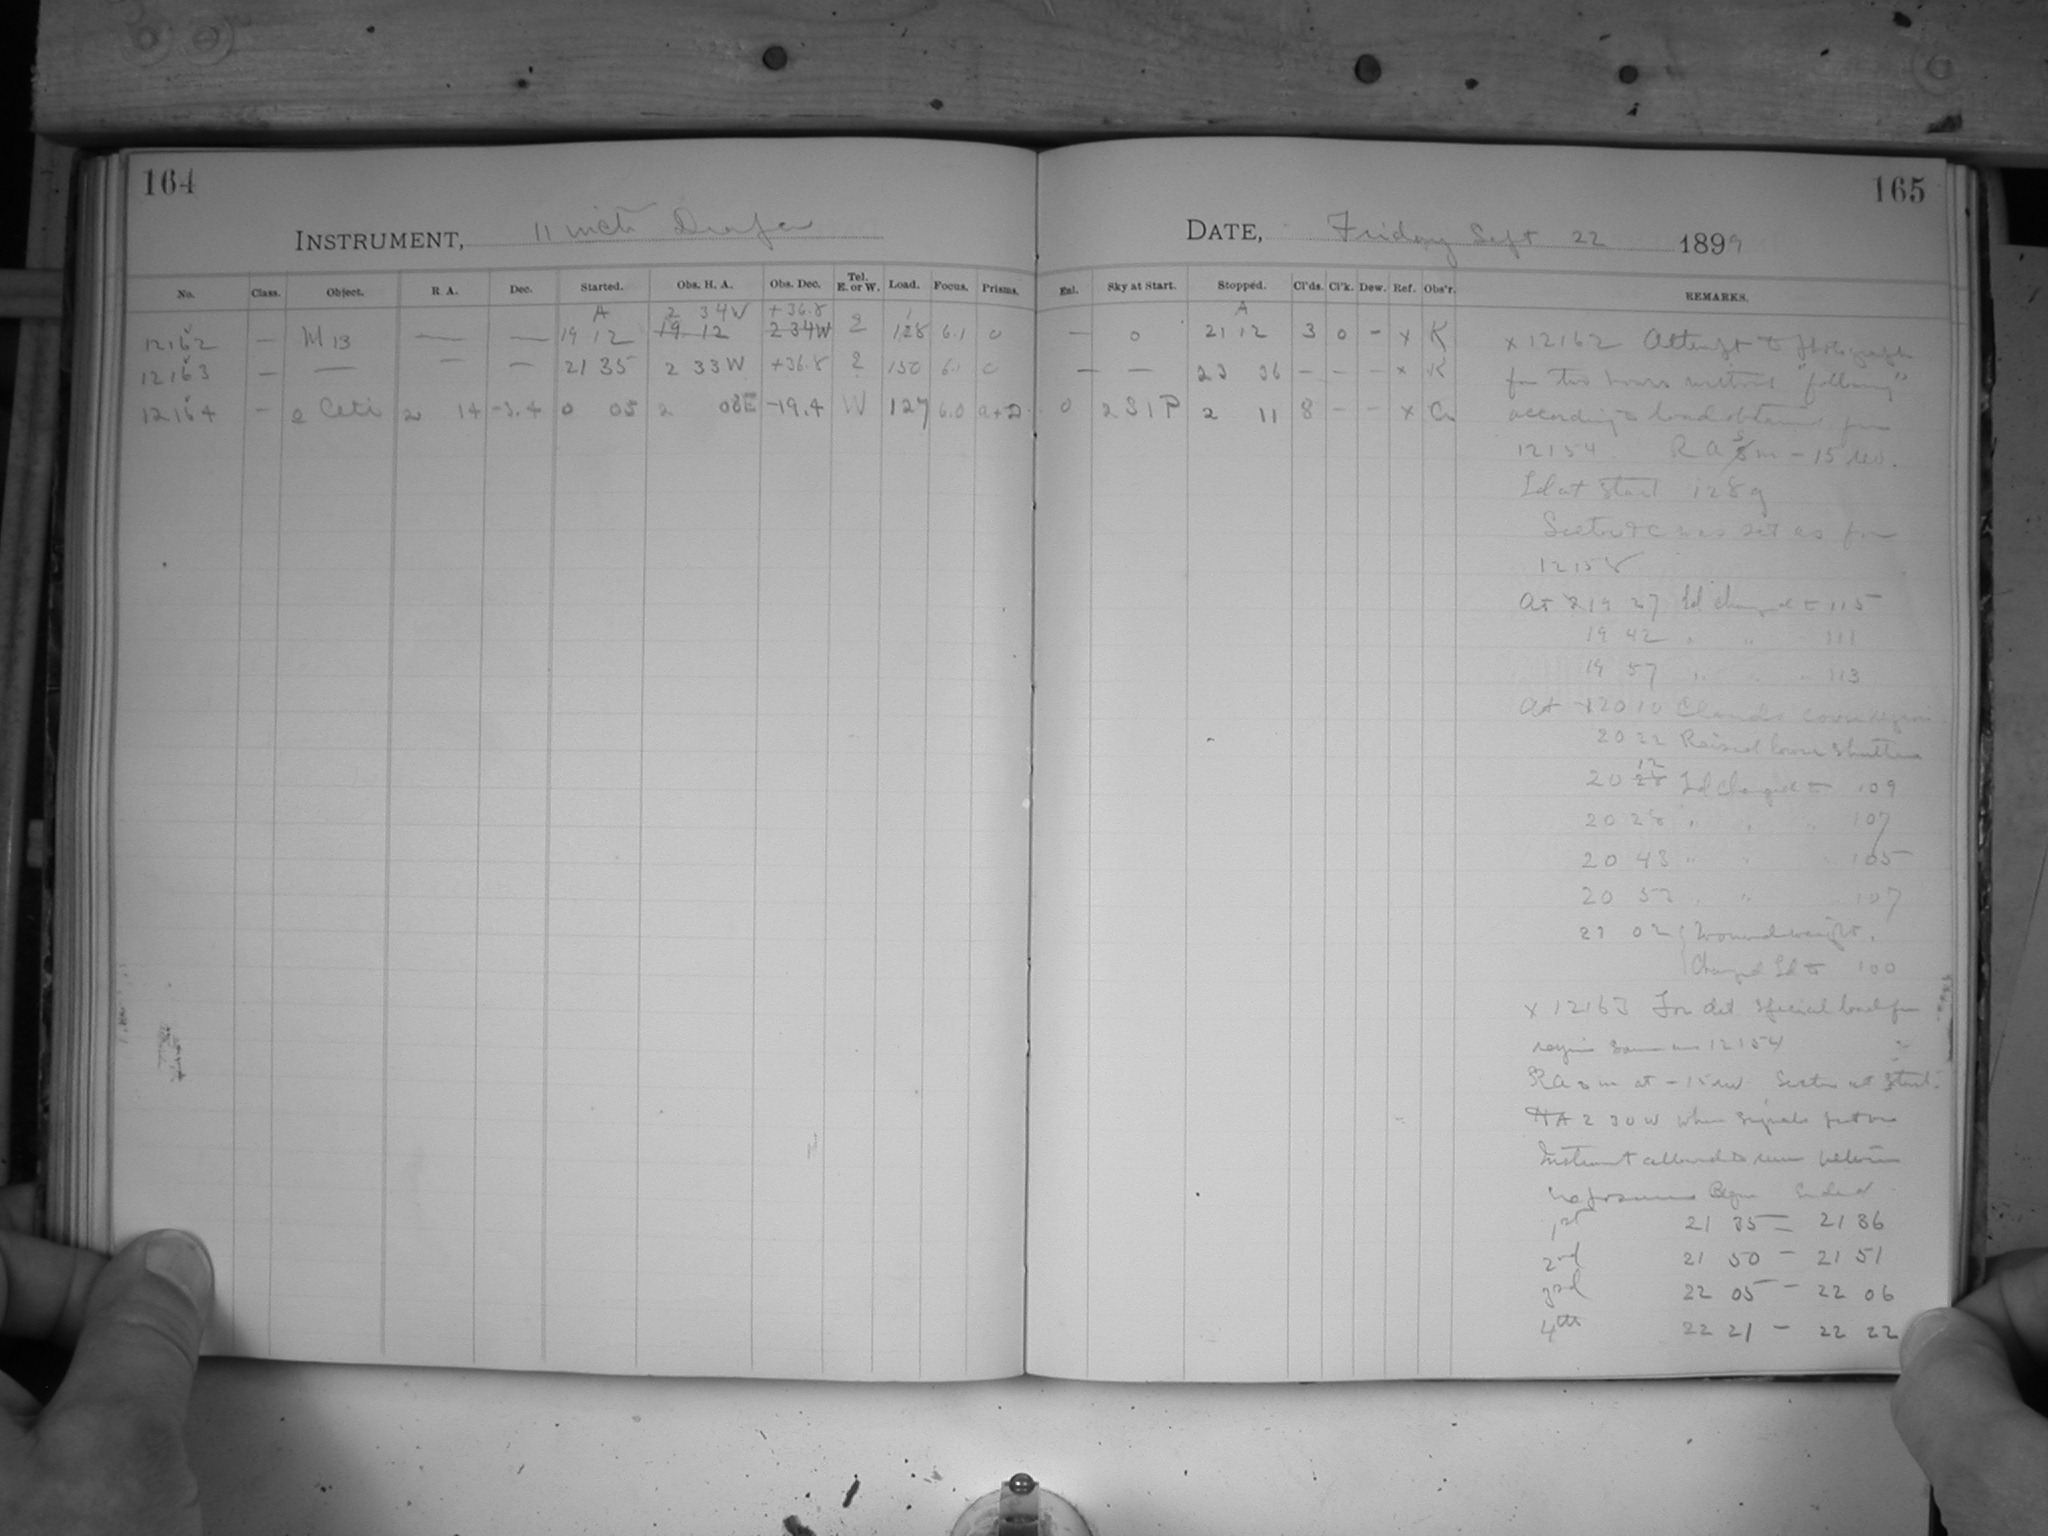 164
INSTRUMENT, 11 inch Draper
No. Class. Object. R A. Dec. Started. Obs. H. A. Obs. Dec. Tel. E. or W. Load. Focus. Prisms.
A 2 34W +36.8
12162 — M 13 — — 19 12 19 12 2 34W E 128 6.1 0
12163 — — — — 21 35 2 33W +36.8 E 150 6.1 0
12164 — o Ceti 2 14 -3.4 0 05 2 08E -19.4 W 127 6.0 a+D
165
DATE, Friday Sept 22 1899
Enl. Sky at Start. Stopped. Cl'ds. Cl'k. Dew. Ref. Obs'r. REMARKS.
A
— 0 21 12 3 0 – x K
— — 23 36 – – – x K
0 2 S 1 P 2 11 8 – – x
x 12162 Attempt to photograph
for two hours without "following"
according to load obtained from
12154. R A m – 15 rev.
Ld at start 128 g
was set as for
12158
At 19 27 Ld changed to 115
19 42 " " 111
19 57 " " " 113
At 20 10 Clouds
20 22 Raised lower shutter
12
20 28 Ld Changed to 109
20 28 " " " 107
20 43 " " " 105
20 52 " " 107
21 02 { Wound weight.
Changed Ld to 100
x 12163 For det special load for
region same as 12154
RA m at – 15 rev at start.
HA 2 30 W when signals
Instrument allowed to run between
exposures Began Ended
1st 21 35 – 21 36
2nd 21 50 – 21 51
3rd 22 05 – 22 06
4th 22 21 – 22 22